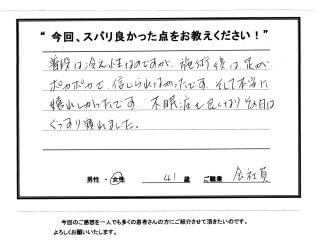 “今回、スパリ良かった点をお教えください！”
普段は冷え性なのですが、施術後は足が
ポカポカで、信じられなかったです。そして本当に
嬉しかったです。不眠症も良くなり その日は
ぐっすり眠れました。
男性・女性 41歳 ご職業 会社員
今回のご感想を一人でも多くの患者さんの方にご紹介させて頂きたいのです。
よろしくお願いいたします。